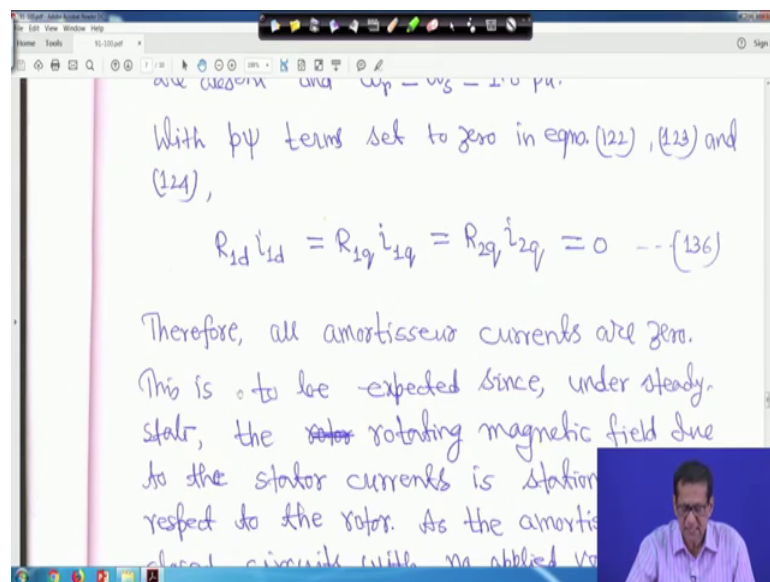 File Edit View Window Help
Home Tools 91-100.pdf × Sign
are absent and ωr = ωs = 1.0 pu.
With pψ terms set to zero in eqns. (122), (123) and
(124),
R1d i1d = R1q i1q = R2q i2q = 0 --- (136)
Therefore, all amortisseur currents are zero.
This is to be expected since, under steady-
state, the rotating magnetic field due
to the stator currents is station
respect to the rotor. As the amortis
closed circuits with no applied vo